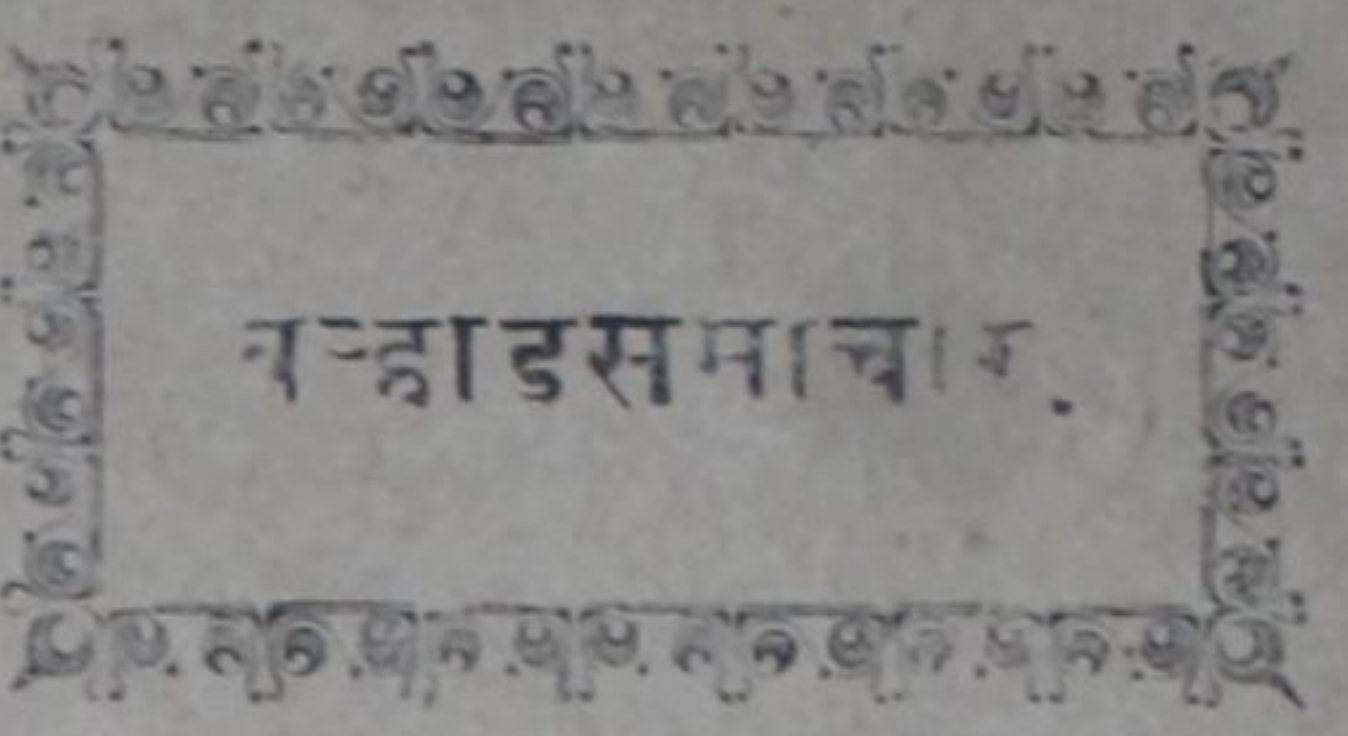 वऱ्हाडसमाचार.